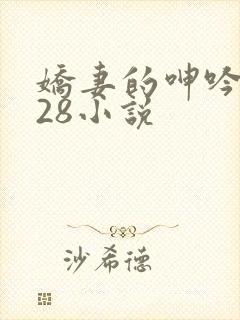 嬌妻的呻吟
28小說
沙希德